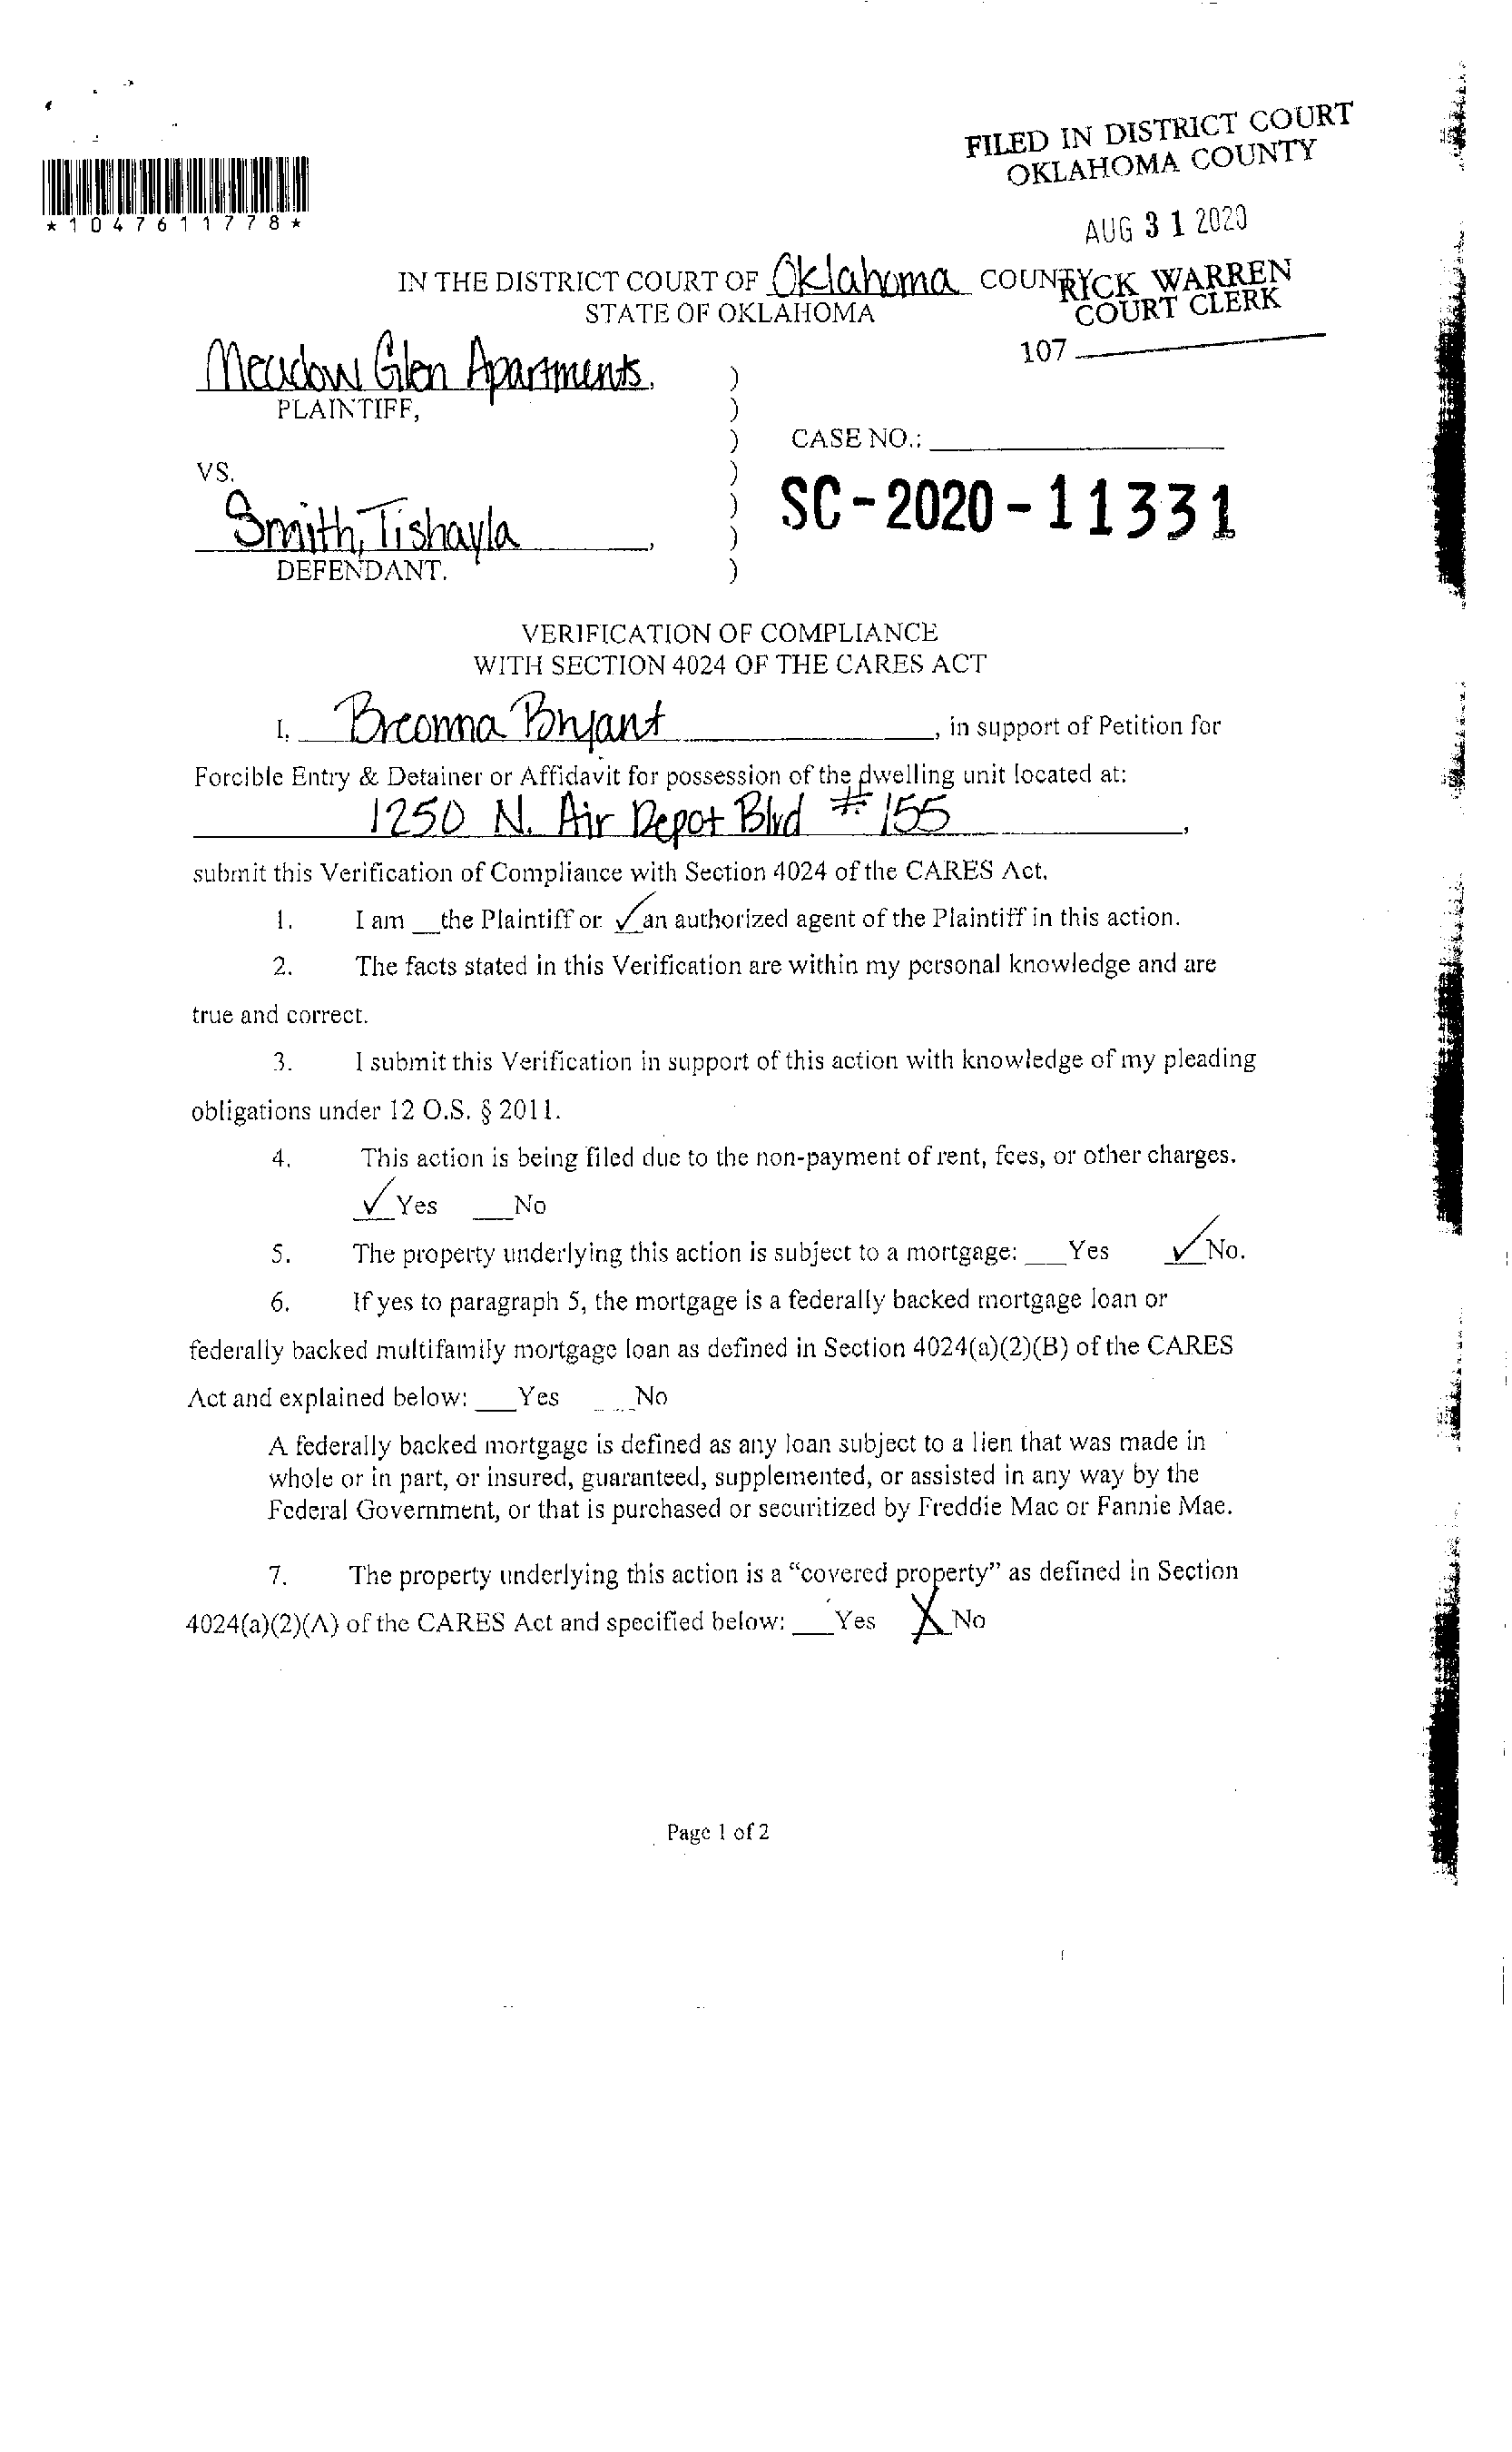 FILED IN DISTRICT COURT
OKLAHOMA COUNTY
*1047611778*
AUG 31 2020
IN THE DISTRICT COURT OF Oklahoma COUNTY
RICK WARREN
STATE OF OKLAHOMA
COURT CLERK
107
Meadow Glen Apartments, )
PLAINTIFF, )
) CASE NO.:
VS. )
) SC-2020-11331
Smith, Tishayla, )
DEFENDANT. )
VERIFICATION OF COMPLIANCE
WITH SECTION 4024 OF THE CARES ACT
I, Breonna Bryant, in support of Petition for
Forcible Entry & Detainer or Affidavit for possession of the dwelling unit located at:
1250 N. Air Depot Blvd #155,
submit this Verification of Compliance with Section 4024 of the CARES Act.
1. I am __the Plaintiff or ✓an authorized agent of the Plaintiff in this action.
2. The facts stated in this Verification are within my personal knowledge and are
true and correct.
3. I submit this Verification in support of this action with knowledge of my pleading
obligations under 12 O.S. § 2011.
4. This action is being filed due to the non-payment of rent, fees, or other charges.
✓Yes ___No
5. The property underlying this action is subject to a mortgage: ___Yes ✓No.
6. If yes to paragraph 5, the mortgage is a federally backed mortgage loan or
federally backed multifamily mortgage loan as defined in Section 4024(a)(2)(B) of the CARES
Act and explained below: ___Yes ___No
A federally backed mortgage is defined as any loan subject to a lien that was made in
whole or in part, or insured, guaranteed, supplemented, or assisted in any way by the
Federal Government, or that is purchased or securitized by Freddie Mac or Fannie Mae.
7. The property underlying this action is a “covered property” as defined in Section
4024(a)(2)(A) of the CARES Act and specified below: ___Yes X No
Page 1 of 2